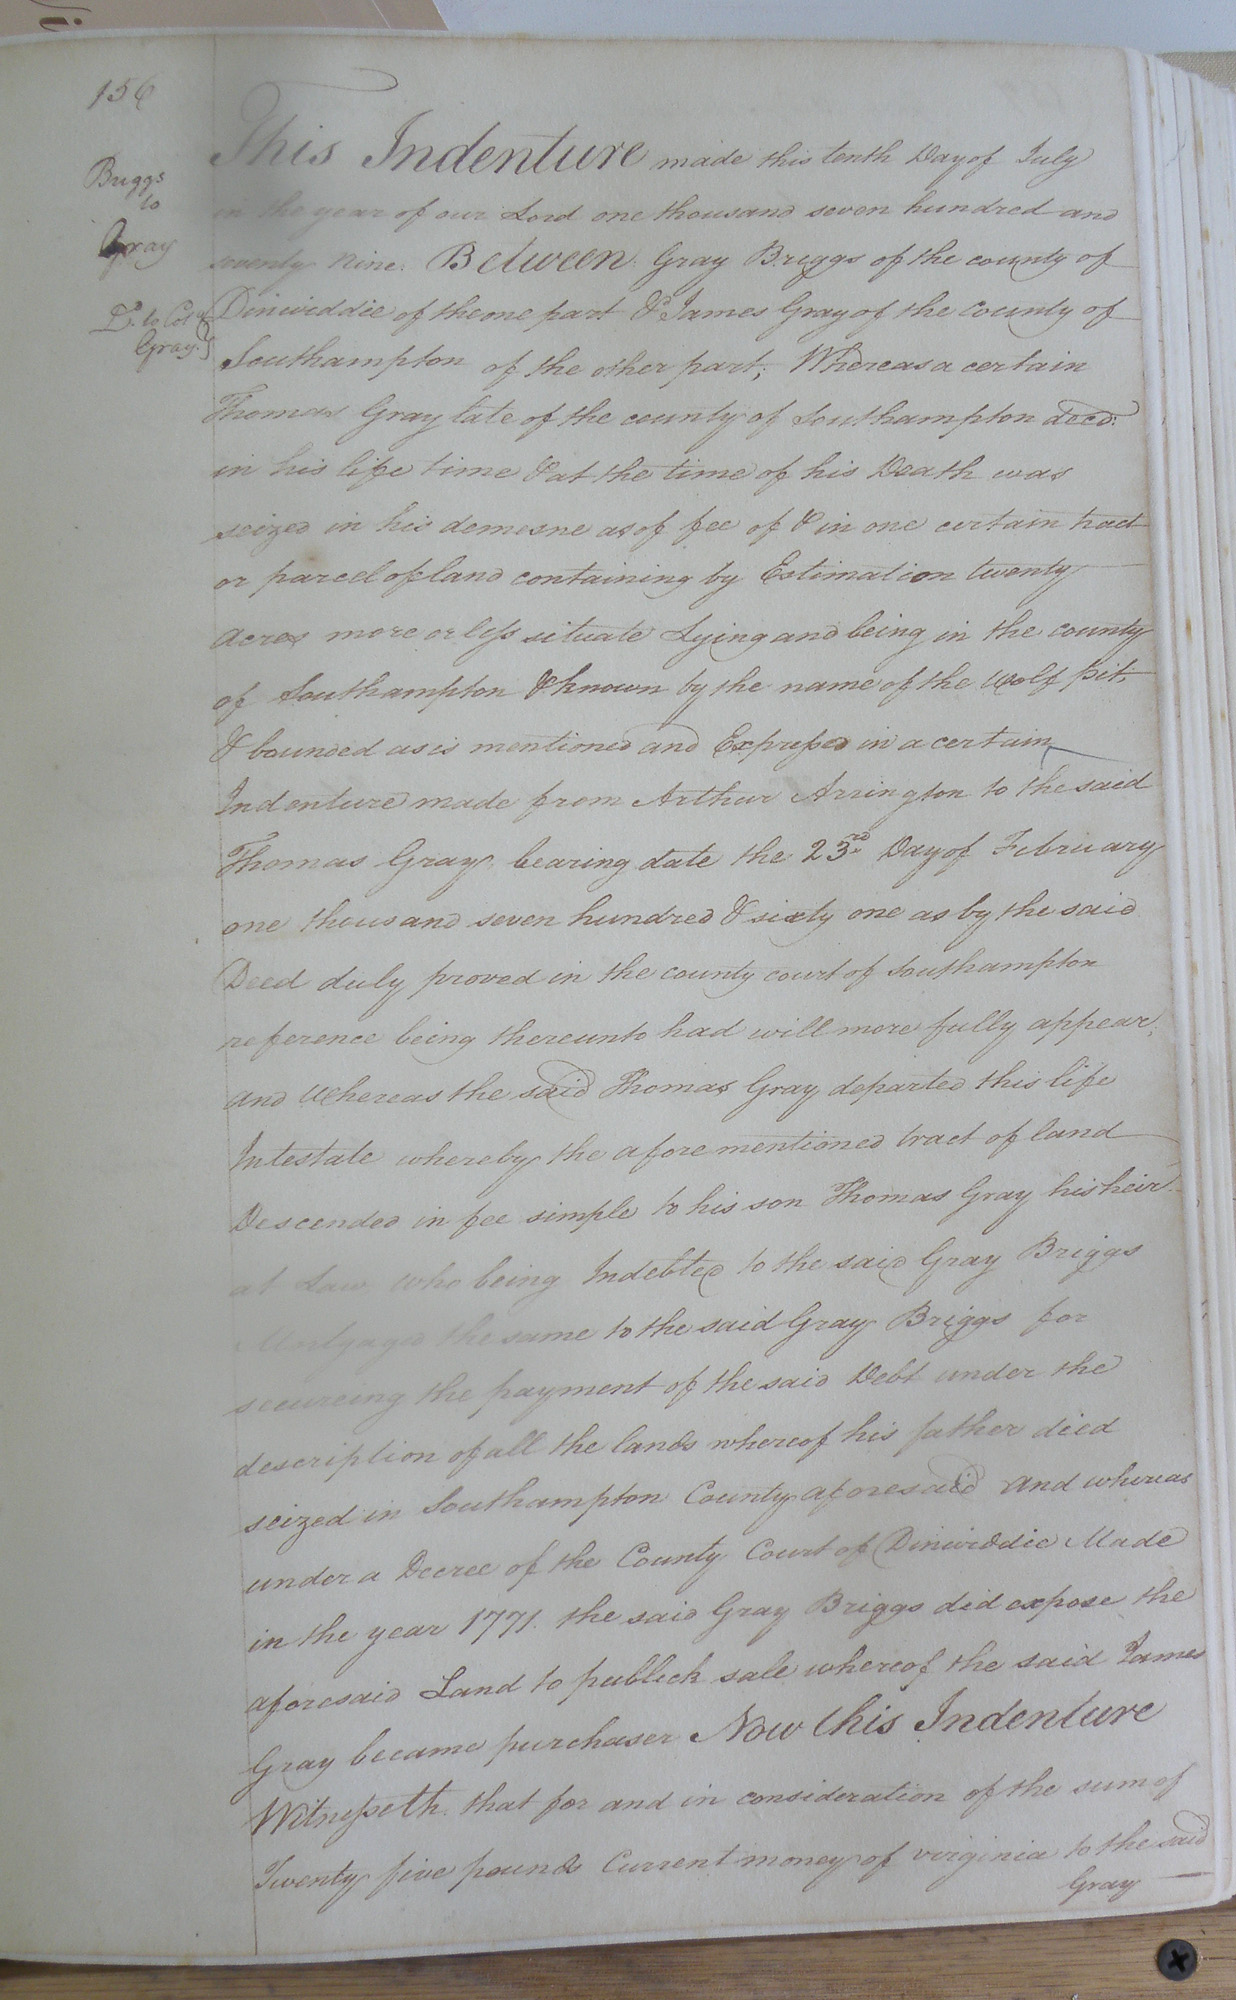 156
Briggs
to
Gray
Dd. to Colo.
Gray.
This Indenture made this tenth Day of July
in the year of our Lord one thousand seven hundred and
seventy nine. Between Gray Briggs of the county of
Dinwiddie of the one part & James Gray of the County of
Southampton of the other part; Whereas a certain
Thomas Gray late of the county of Southampton decd.
in his life time & at the time of his Death was
seized in his demesne as of fee of & in one certain tract
or parcel of land containing by Estimation twenty
acres more or less situate Lying and being in the county
of Southampton & known by the name of the Wolf Pit,
& bounded as is mentioned and Expressed in a certain
Indenture made from Arthur Arrington to the said
Thomas Gray bearing date the 23rd Day of February
one thousand seven hundred & sixty one as by the said
Deed duly proved in the county court of Southampton
reference being thereunto had will more fully appear;
and Whereas the said Thomas Gray departed this life
Intestate whereby the afore mentioned tract of land
Descended in fee simple to his son Thomas Gray his heir
at Law who being Indebted to the said Gray Briggs
Mortgaged the same to the said Gray Briggs for
secureing the payment of the said Debt under the
description of all the lands whereof his father died
seized in Southampton County aforesaid and whereas
under a Decree of the County Court of Dinwiddie Made
in the year 1771. the said Gray Briggs did expose the
aforesaid Land to publick sale whereof the said James
Gray became purchaser Now this Indenture
Witnesseth that for and in consideration of the sum of
Twenty five pounds Current money of virginia to the said
Gray